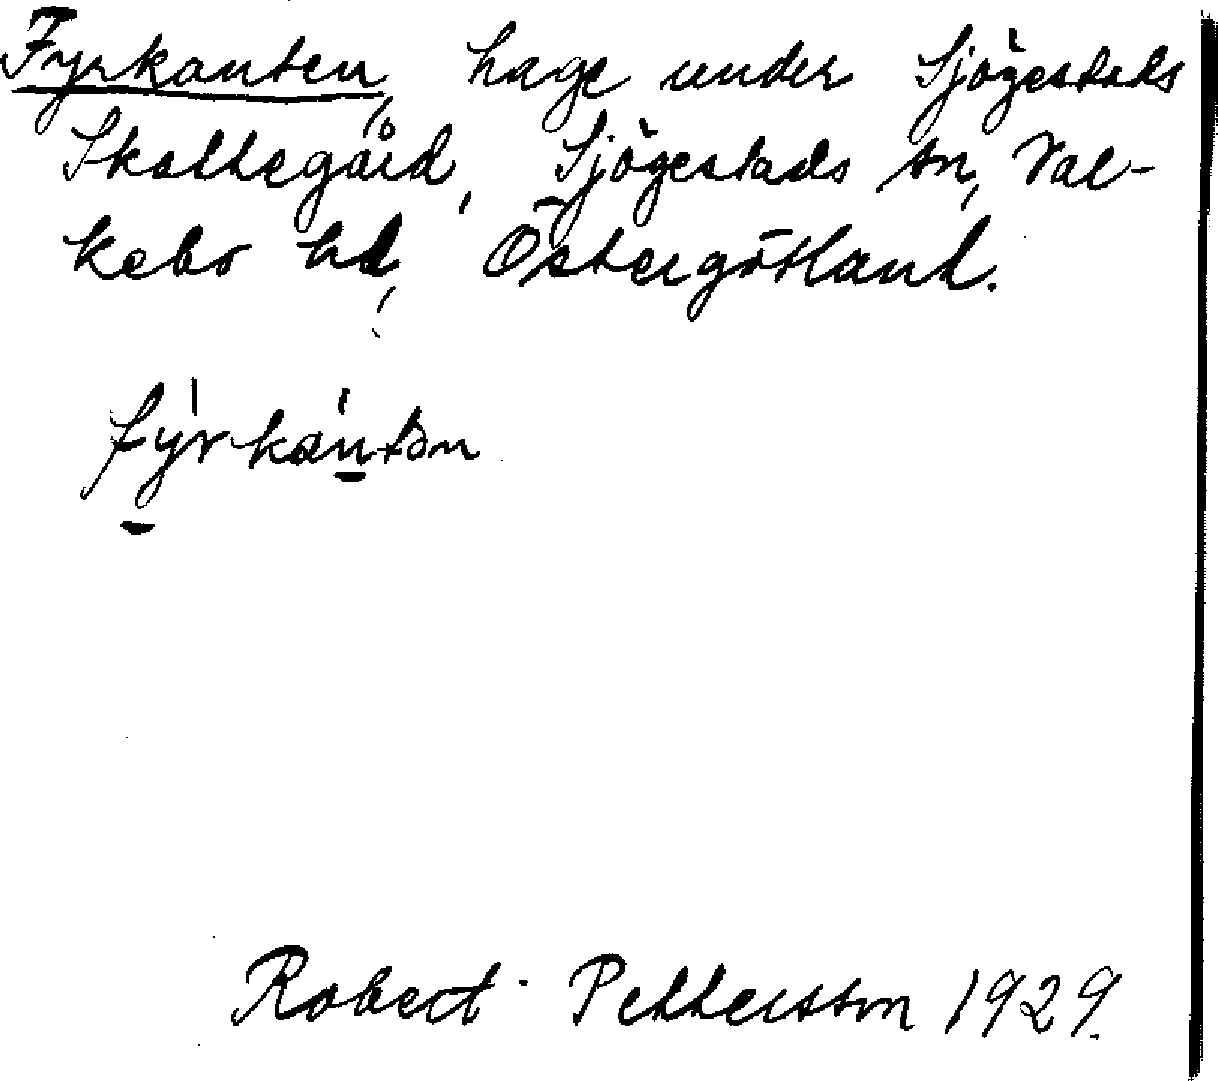 Fyrkanten, hage under Sjögestads
Skattegård, Sjögestads sn, Val-
kebo hd, Östergötland.
fyrkantən
Robert Pettersson 1929.